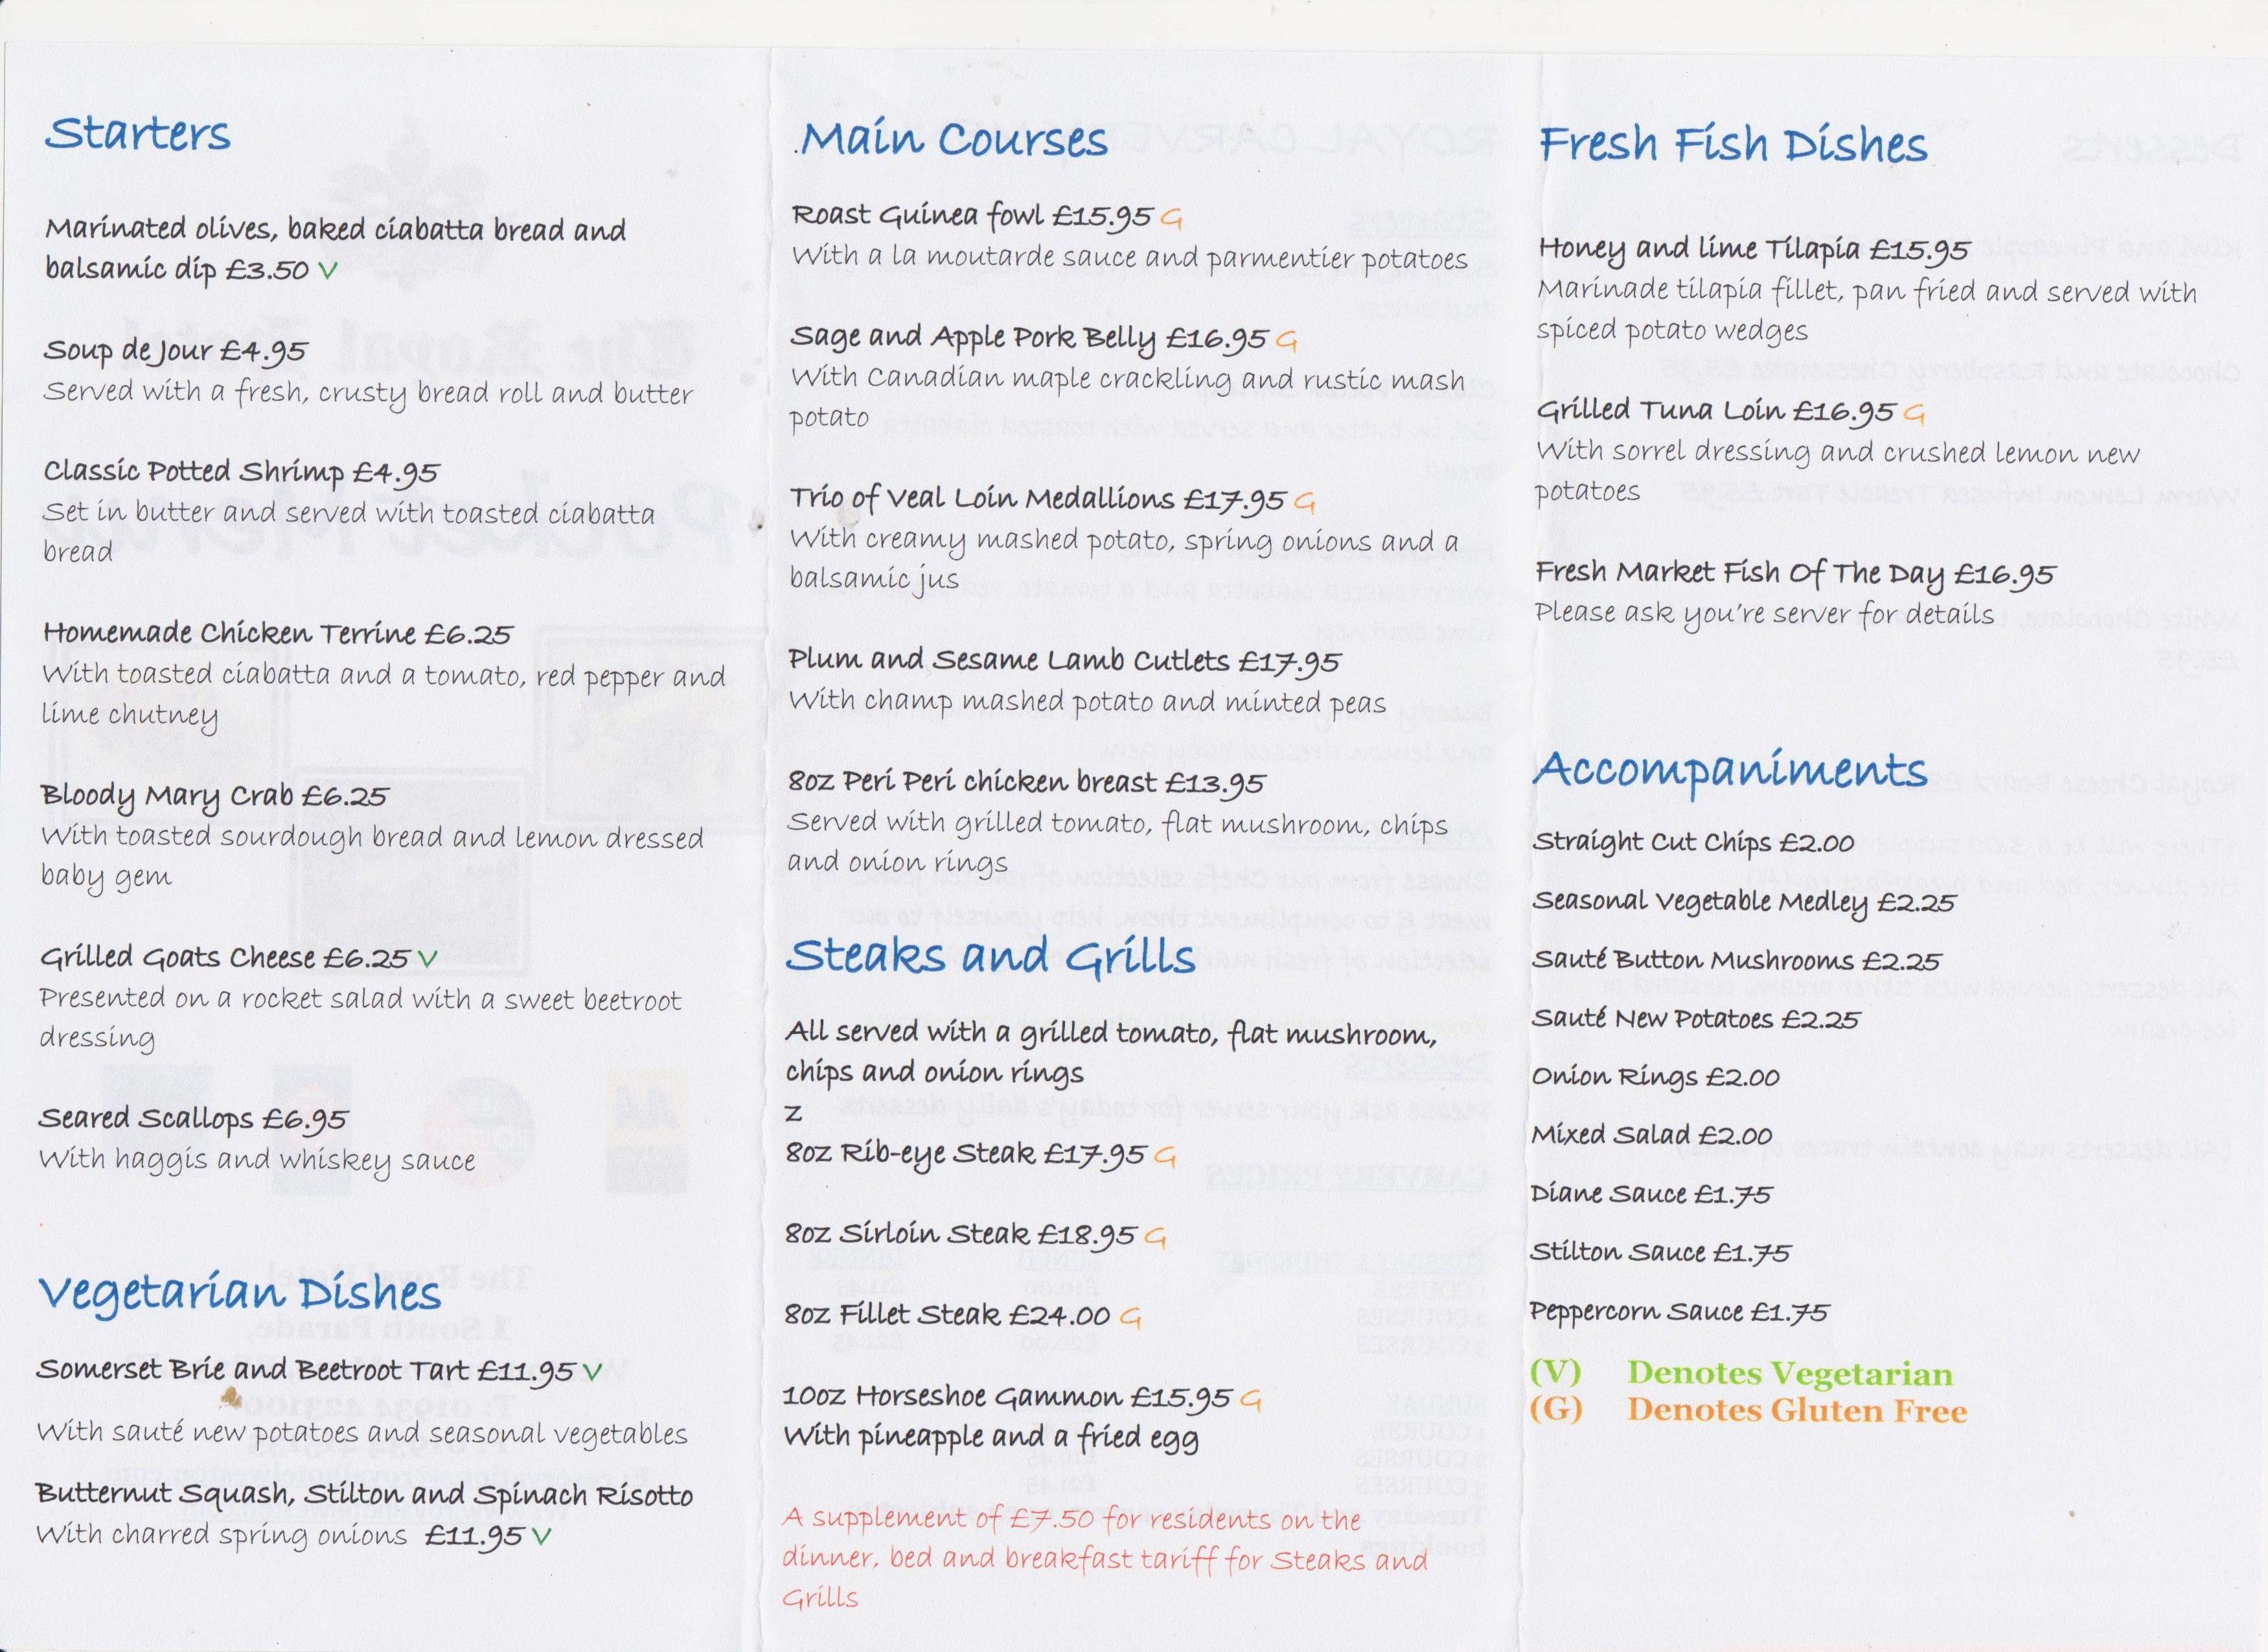 Starters
Marinated olives, baked ciabatta bread and
balsamic dip £3.50 V
Soup de Jour £4.95
Served with a fresh, crusty bread roll and butter
Classic Potted Shrimp £4.95
Set in butter and served with toasted ciabatta
bread
Homemade Chicken Terrine £6.25
With toasted ciabatta and a tomato, red pepper and
lime chutney
Bloody Mary Crab £6.25
With toasted sourdough bread and lemon dressed
baby gem
Grilled Goats Cheese £6.25 V
Presented on a rocket salad with a sweet beetroot
dressing
Seared Scallops £6.95
With haggis and whiskey sauce
Vegetarian Dishes
Somerset Brie and Beetroot Tart £11.95 V
With sauté new potatoes and seasonal vegetables
Butternut Squash, Stilton and Spinach Risotto
With charred spring onions £11.95 V
.Main Courses
Roast Guinea fowl £15.95 G
With a la moutarde sauce and parmentier potatoes
Sage and Apple Pork Belly £16.95 G
With Canadian maple crackling and rustic mash
potato
Trio of Veal Loin Medallions £17.95 G
With creamy mashed potato, spring onions and a
balsamic jus
Plum and Sesame Lamb Cutlets £17.95
With champ mashed potato and minted peas
8oz Peri Peri chicken breast £13.95
Served with grilled tomato, flat mushroom, chips
and onion rings
Steaks and Grills
All served with a grilled tomato, flat mushroom,
chips and onion rings
z
8oz Rib-eye Steak £17.95 G
8oz Sirloin Steak £18.95 G
8oz Fillet Steak £24.00 G
10oz Horseshoe Gammon £15.95 G
With pineapple and a fried egg
A supplement of £7.50 for residents on the
dinner, bed and breakfast tariff for Steaks and
Grills
Fresh Fish Dishes
Honey and lime Tilapia £15.95
Marinade tilapia fillet, pan fried and served with
spiced potato wedges
Grilled Tuna Loin £16.95 G
With sorrel dressing and crushed lemon new
potatoes
Fresh Market Fish Of The Day £16.95
Please ask you're server for details
Accompaniments
Straight Cut Chips £2.00
Seasonal Vegetable Medley £2.25
Sauté Button Mushrooms £2.25
Sauté New Potatoes £2.25
Onion Rings £2.00
Mixed Salad £2.00
Diane Sauce £1.75
Stilton Sauce £1.75
Peppercorn Sauce £1.75
(V) Denotes Vegetarian
(G) Denotes Gluten Free